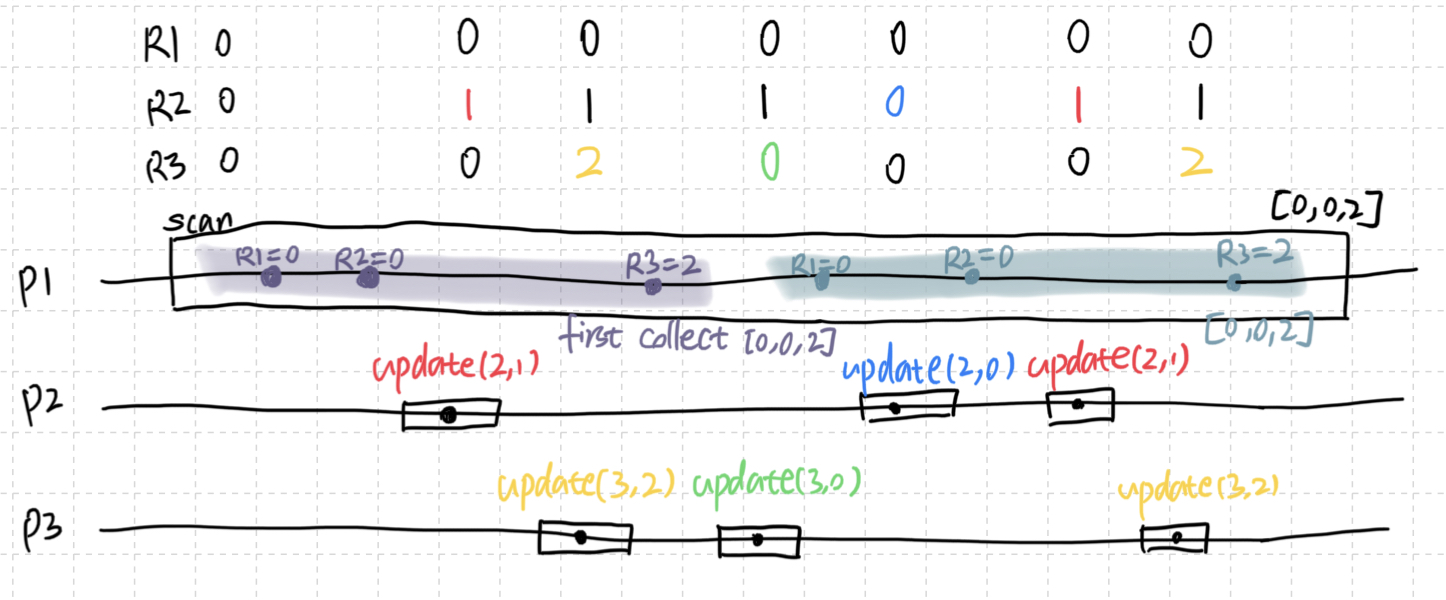 R1 0 0 0 0 0 0 0
R2 0 1 1 1 0 1 1
R3 0 0 2 0 0 0 2
scan [0,0,2]
R1=0 R2=0 R3=2 R1=0 R2=0 R3=2
P1
first collect [0,0,2] [0,0,2]
update(2,1) update(2,0) update(2,1)
P2
update(3,2) update(3,0) update(3,2)
P3